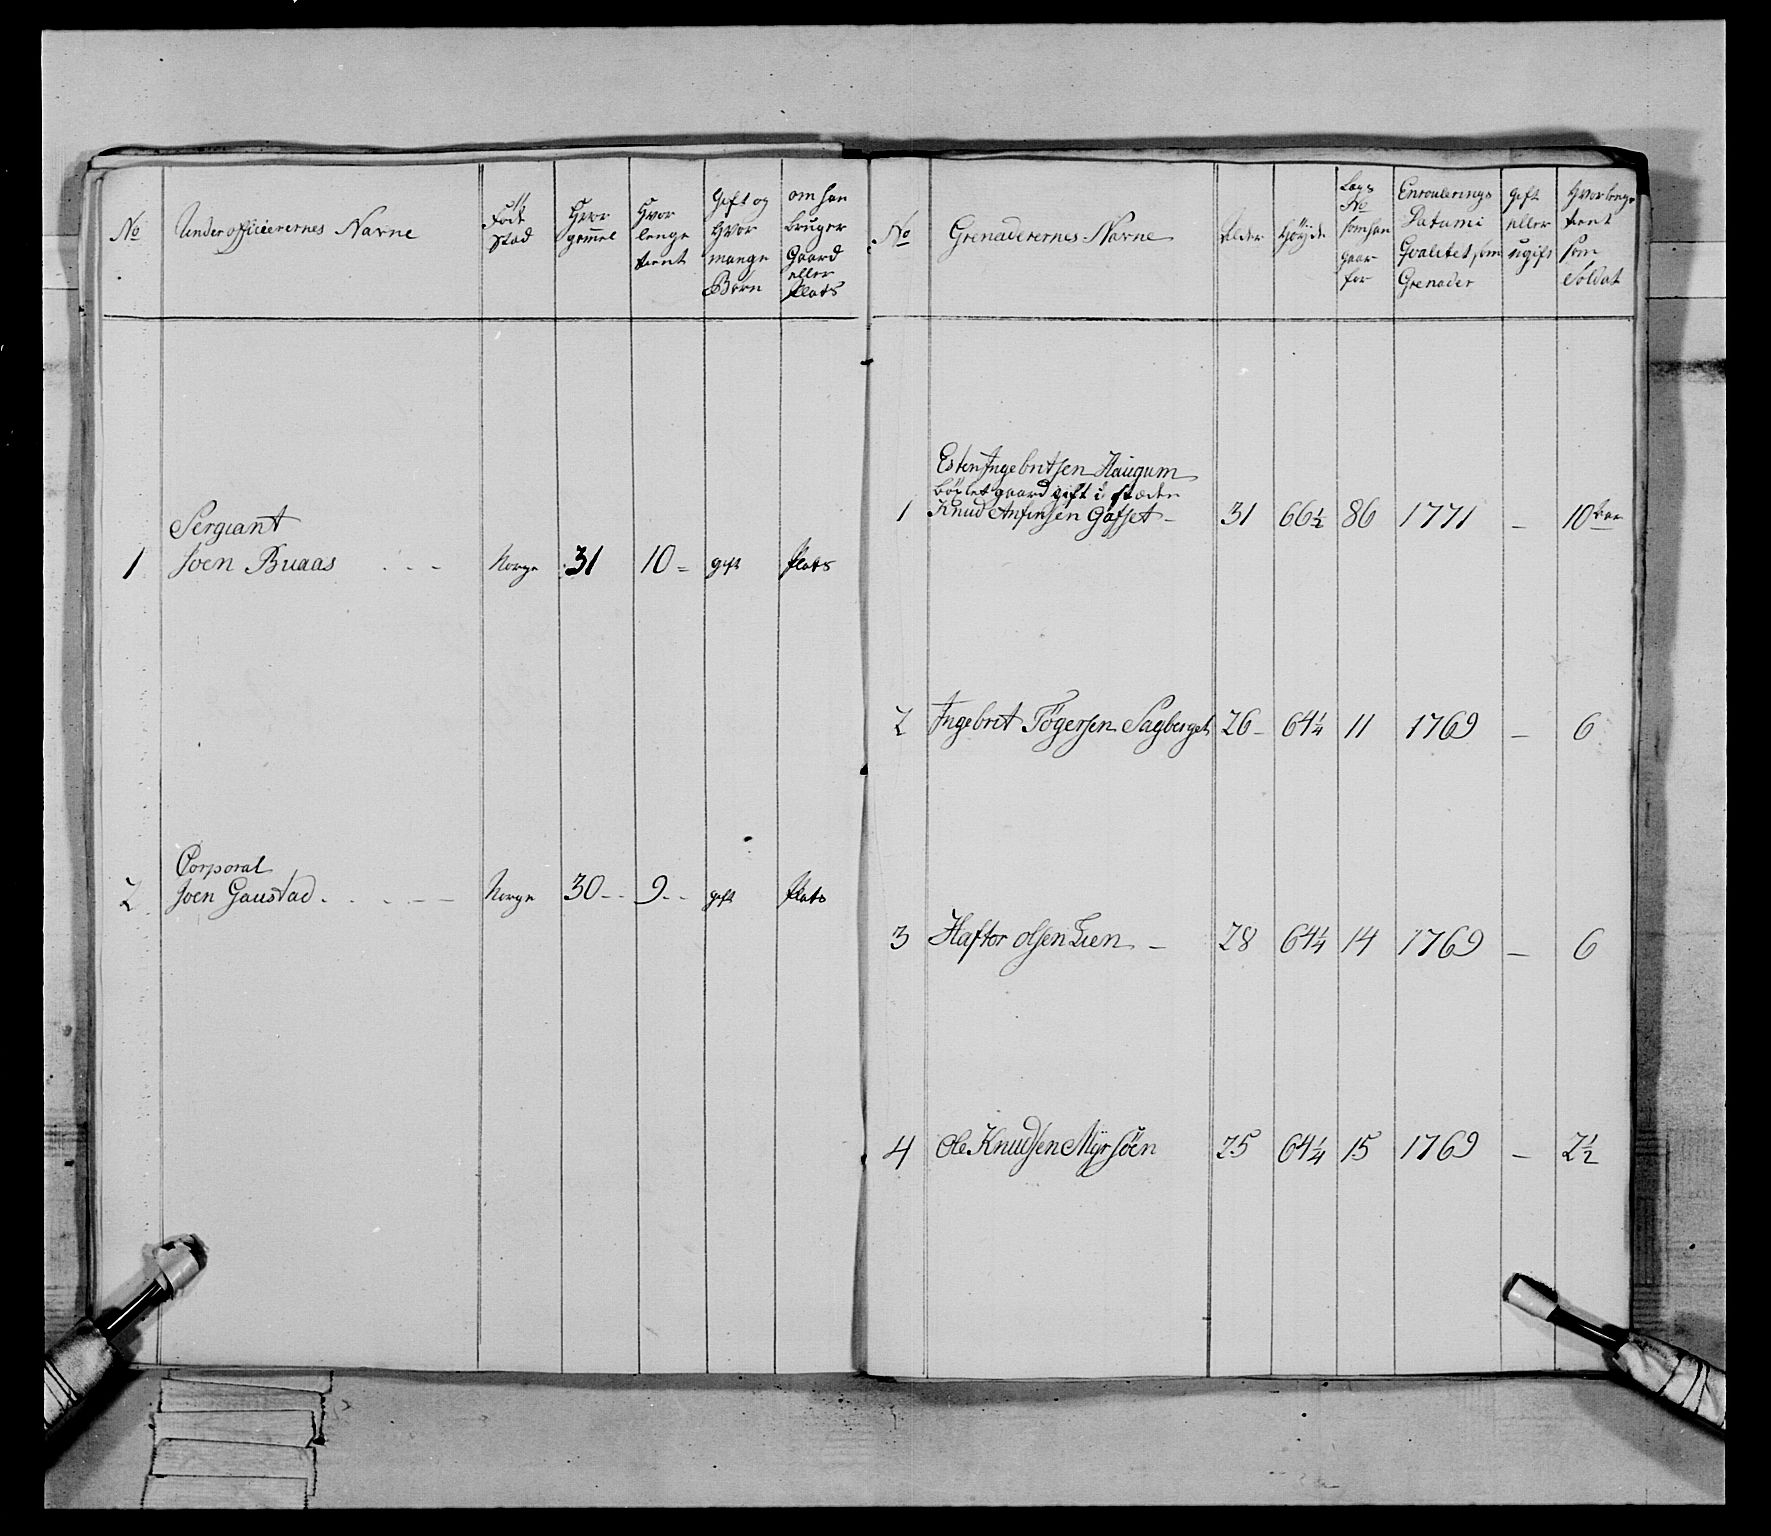 No
Underofficeerernes Navne
Föde
Stad
Hvor
gammel
Hvor
lenge
tient
Gift og
Hvor
mange
Börn
om han
bruger
Gaard
eller
Plads
1
Sergiant
Joen Buaas
Norge
31
10
gift
Plads
2
Corporal
Joen Gaustad
Norge
30
9
gift
Plads
No
Grenaderernes Navne
Alder
Höyde
Legs
No
som han
gaar
for
Enroulerings
Datum i
Qvalitet som
Grenader
gift
eller
ugift
Hvorlenge
tient
som
Soldat
1
Esten Ingebritsen Haugum
gaard gift i stæden
Knud Anfinsen Gafset
31
66½
86
1771
—
10
2
Ingebret Tögersen Sagberget
26
64¼
11
1769
—
6
3
Haftor Olsen Lien
28
64¼
14
1769
—
6
4
Ole Knudsen Myrsöen
25
64¼
15
1769
—
2½